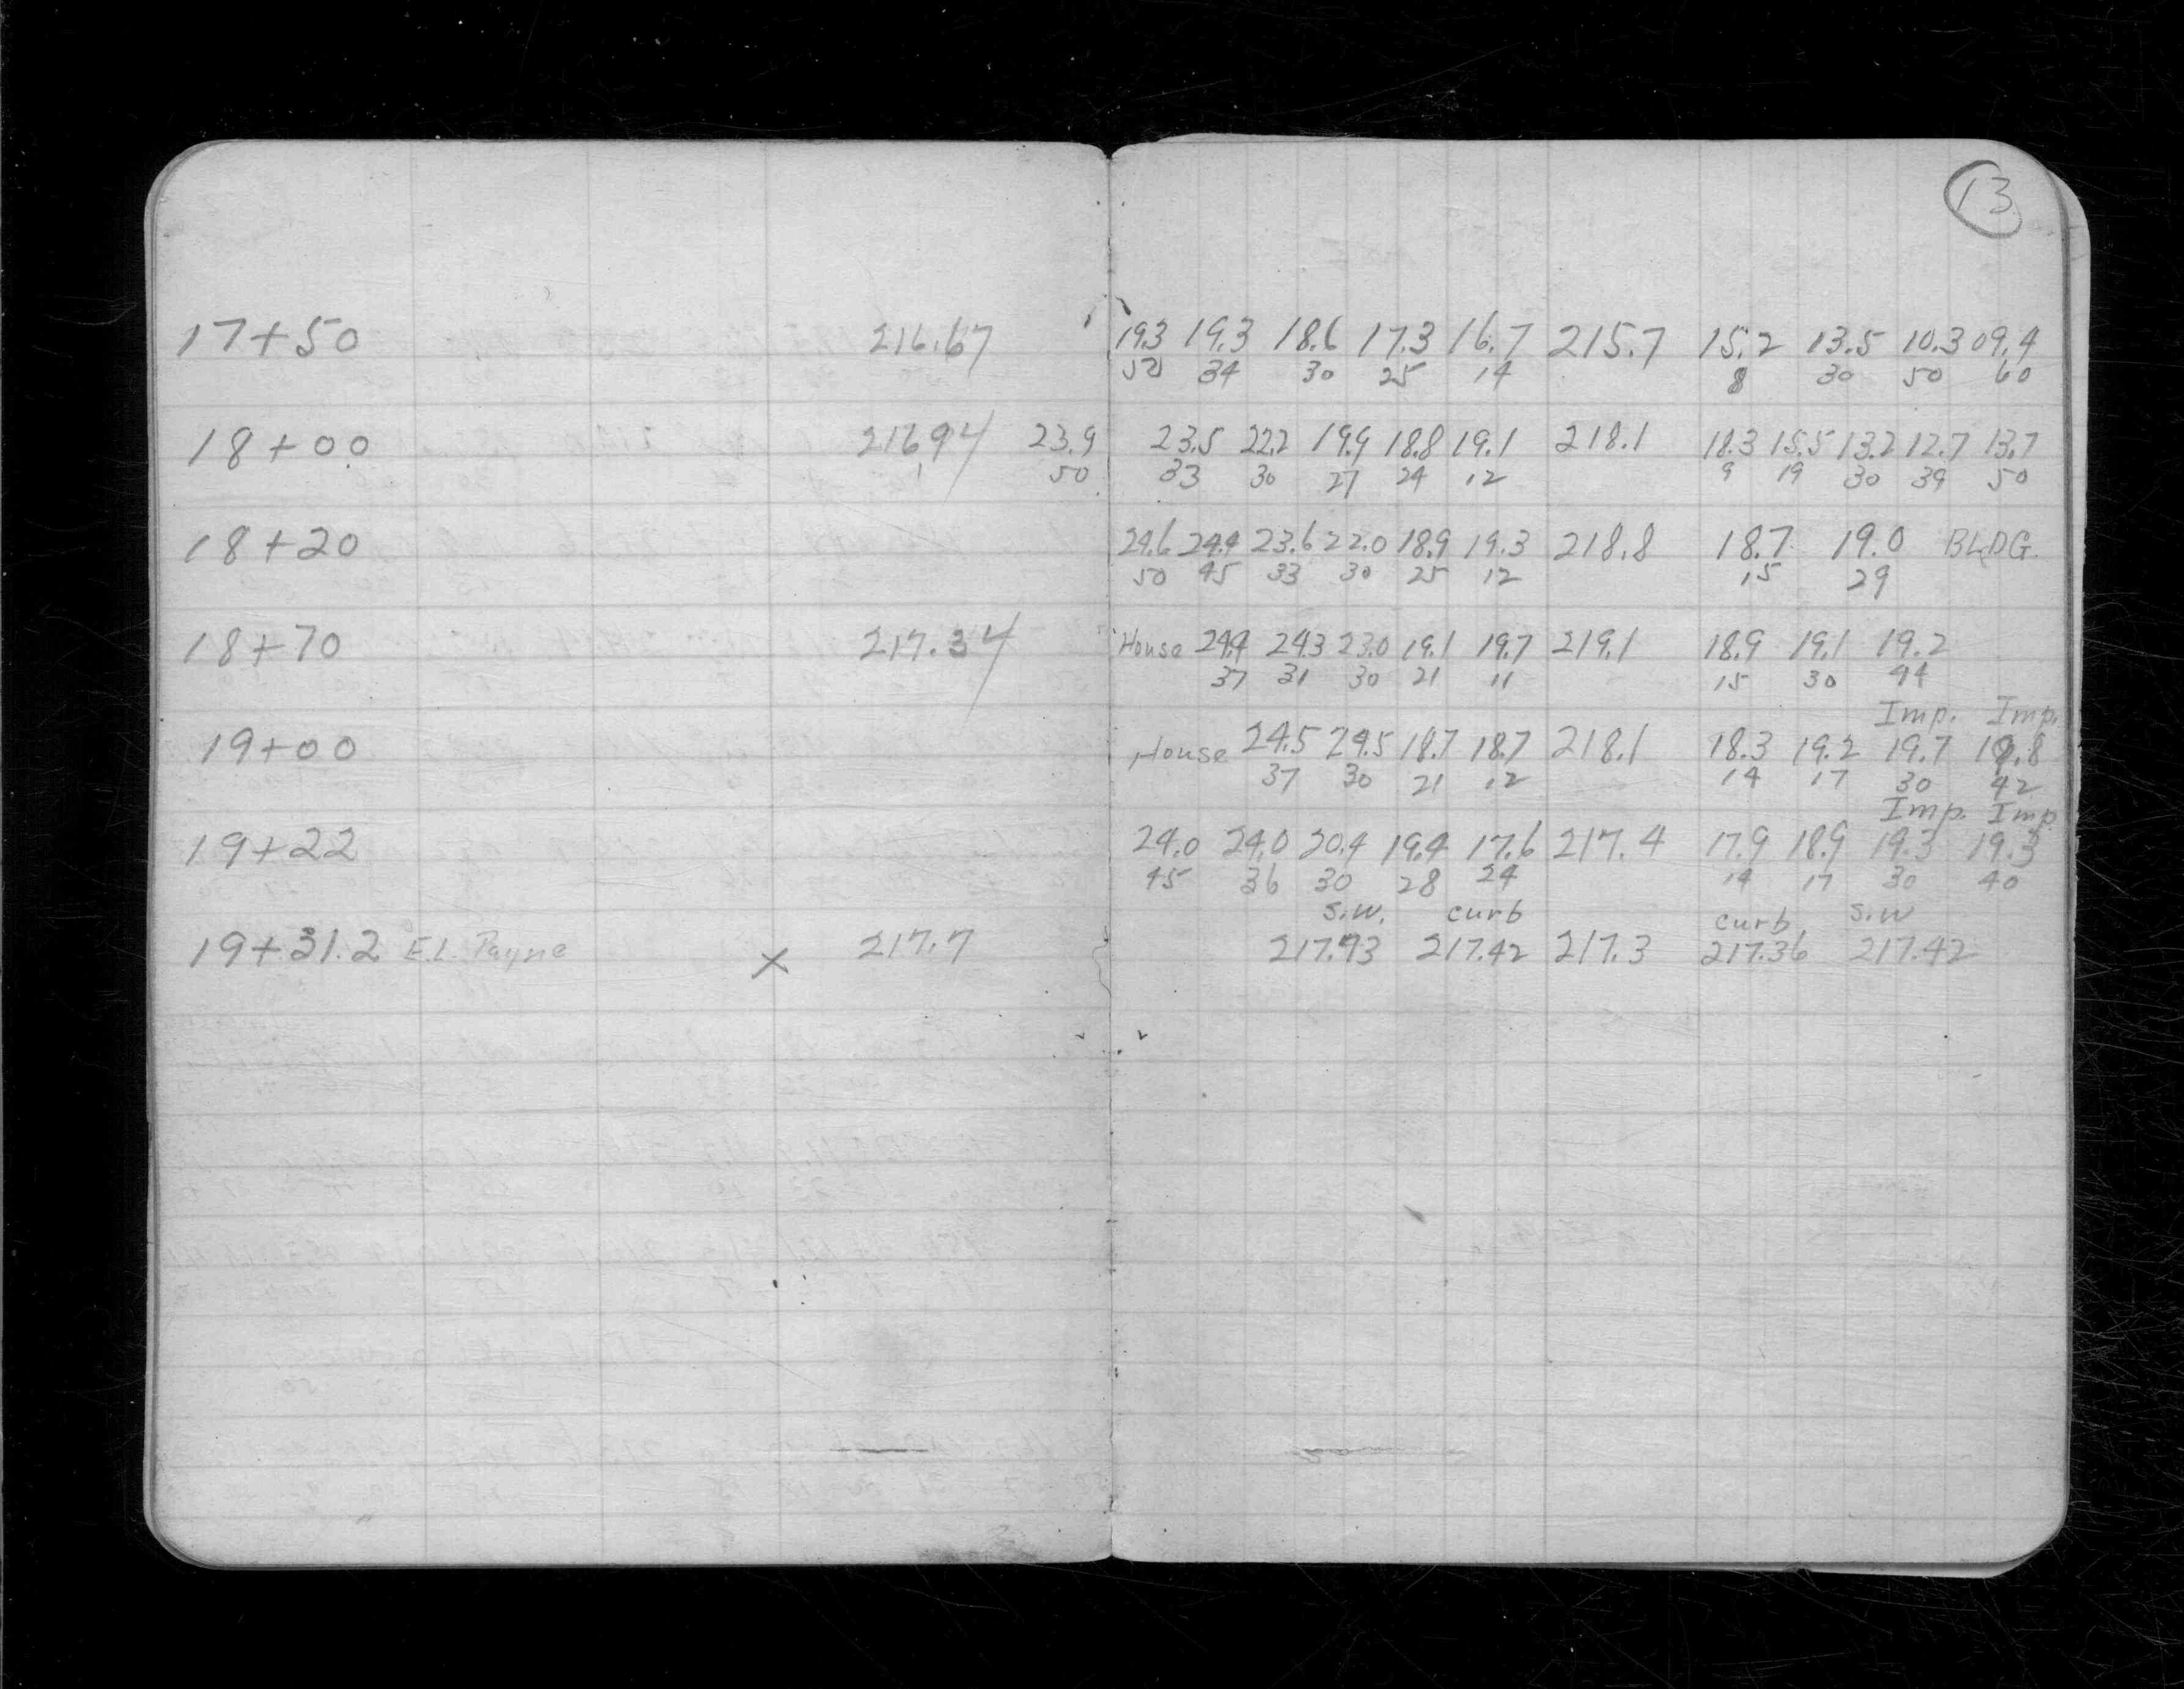 13
17+50 216.67 19.3 19.3 18.6 17.3 16.7 215.7 15.2 13.5 10.3 09.4
50 34 30 25 14 8 30 50 60
18+00 216.94 23.9 23.5 22.2 19.9 18.8 19.1 218.1 18.3 15.5 13.2 12.7 13.7
50 33 30 27 24 12 9 19 30 39 50
18+20 24.6 24.4 23.6 22.0 18.9 19.3 218.8 18.7 19.0 BLDG.
50 45 33 30 25 12 15 29
18+70 217.34 House 24.4 24.3 23.0 19.1 19.7 219.1 18.9 19.1 19.2
37 31 30 21 11 15 30 44
Imp. Imp.
19+00 House 24.5 24.5 18.7 18.7 218.1 18.3 19.2 19.7 19.8
37 30 21 12 14 17 30 42
Imp. Imp.
19+22 24.0 24.0 20.4 19.4 17.6 217.4 17.9 18.9 19.3 19.3
45 36 30 28 24 14 17 30 40
S.W. curb curb S.W
19+31.2 E.L. Payne x 217.7 217.42 217.3 217.36 217.42